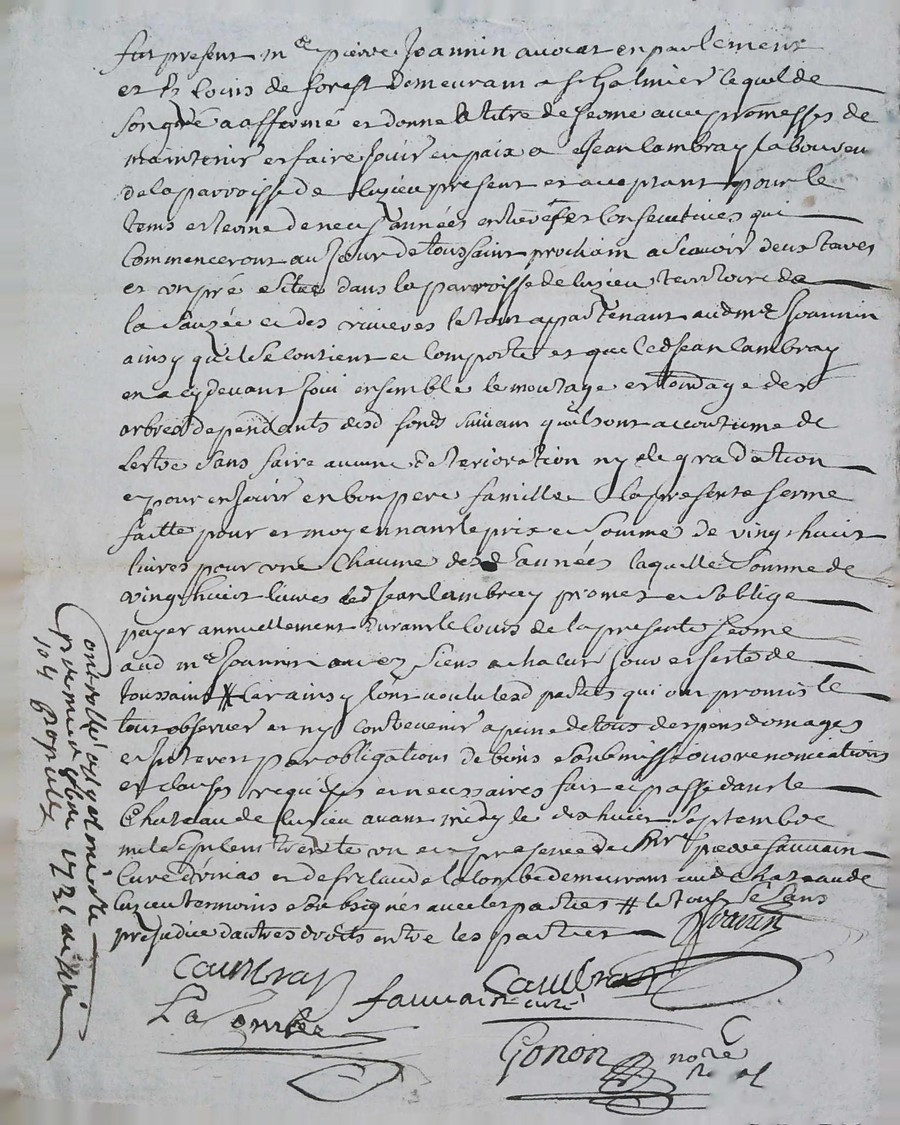 fut present me pierre Joannin avocat en parlement
et Louis de forest demeurant a st Galmier lequel de
son gré a affermé et donne a titre de ferme avec promesses de
maintenir et faire Jouir en paix a Jean Cambray laboureu
de la parroisse de luzieu present et acceptant pour le
tems et terme de neuf années entieres et Consecutives qui
Commenceront au Jour de toussaint prochain a Scavoir deux terres
et un pré Scitués dans la parroisse de luzieu territoire de
la Sauzée et des rivieres le tout appartenant aud me Joannin
ainsy qu'il Se contient et Comporte et que led Jean Cambray
en a cy devant Joui ensemble le moutage et tondage des
arbres dependants desd fonds Suivant quils ont accoutume de
l'estre Sans faire aucune deterioration ny degradation
et pour en Jouir en bon pere famille la presente ferme
faitte pour et moyennant le prix et Somme de vingt huit
livres pour une Chacune desd années laquelle Somme de
vingt huit livres led Jean Cambray promet et S'oblige
payer annuellement durant le Cours de la presente ferme
aud me Joannin ou ez Siens a chacun Jour et feste de
toussaint # Car ainsy l'ont voulu lesd parties qui ont promis le
tout observer et ny contrevenir a peine de tous despens domages
et interets par obligations de biens Soubmissions renonciations
et clauses requises et necessaires fait et passé dans le
Chateau de luzieu avant midy le dix huit Septembre
mil Sept cent trente un en presence de pierre fauvain
Curé et de lacombe demeurant aud Chateau de
luzieu temoins Soubsignés avec les parties # le tout Sans
prejudice d'autres droits entre les parties Joannin
Cambray
fauvain curé Cambray
La Combe
Gonon no.re
Controllé a st galmier le
premier 1731